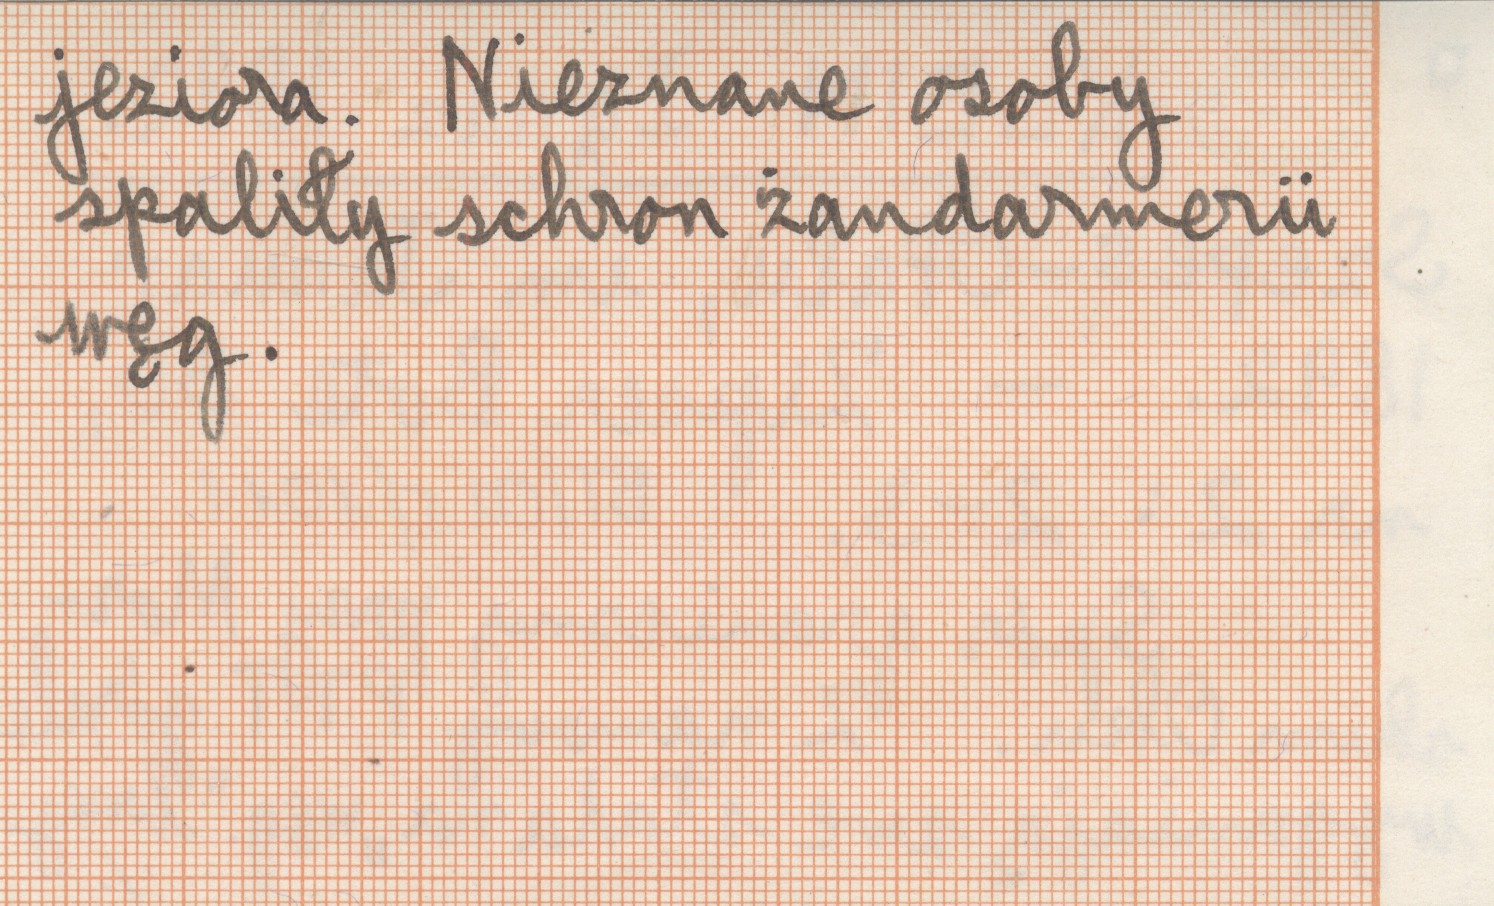 jeziora. Nieznane osoby
spaliły schron żandarmerii
węg.